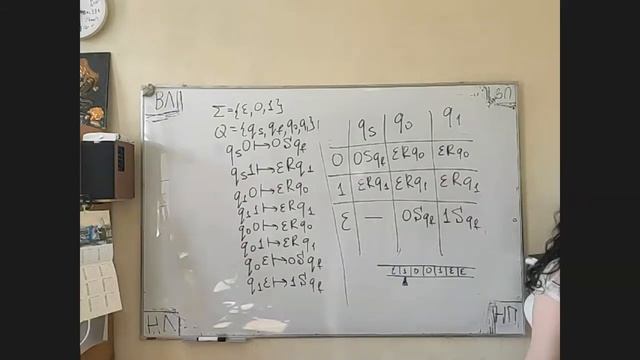 ВЛ
ВП
Σ={ε,0,1}
Q={qₛ,q_f,q₀,q₁}
qₛ0↦0Sq_f
qₛ1↦εRq₁
q₁0↦εRq₀
q₁1↦εRq₁
q₀0↦εRq₀
q₀1↦εRq₁
q₀ε↦0Sq_f
q₁ε↦1Sq_f
qₛ q₀ q₁
0 0Sq_f εRq₀ εRq₀
1 εRq₁ εRq₁ εRq₁
ε — 0Sq_f 1Sq_f
ε 1 0 0 1 ε ε
НЛ
НП